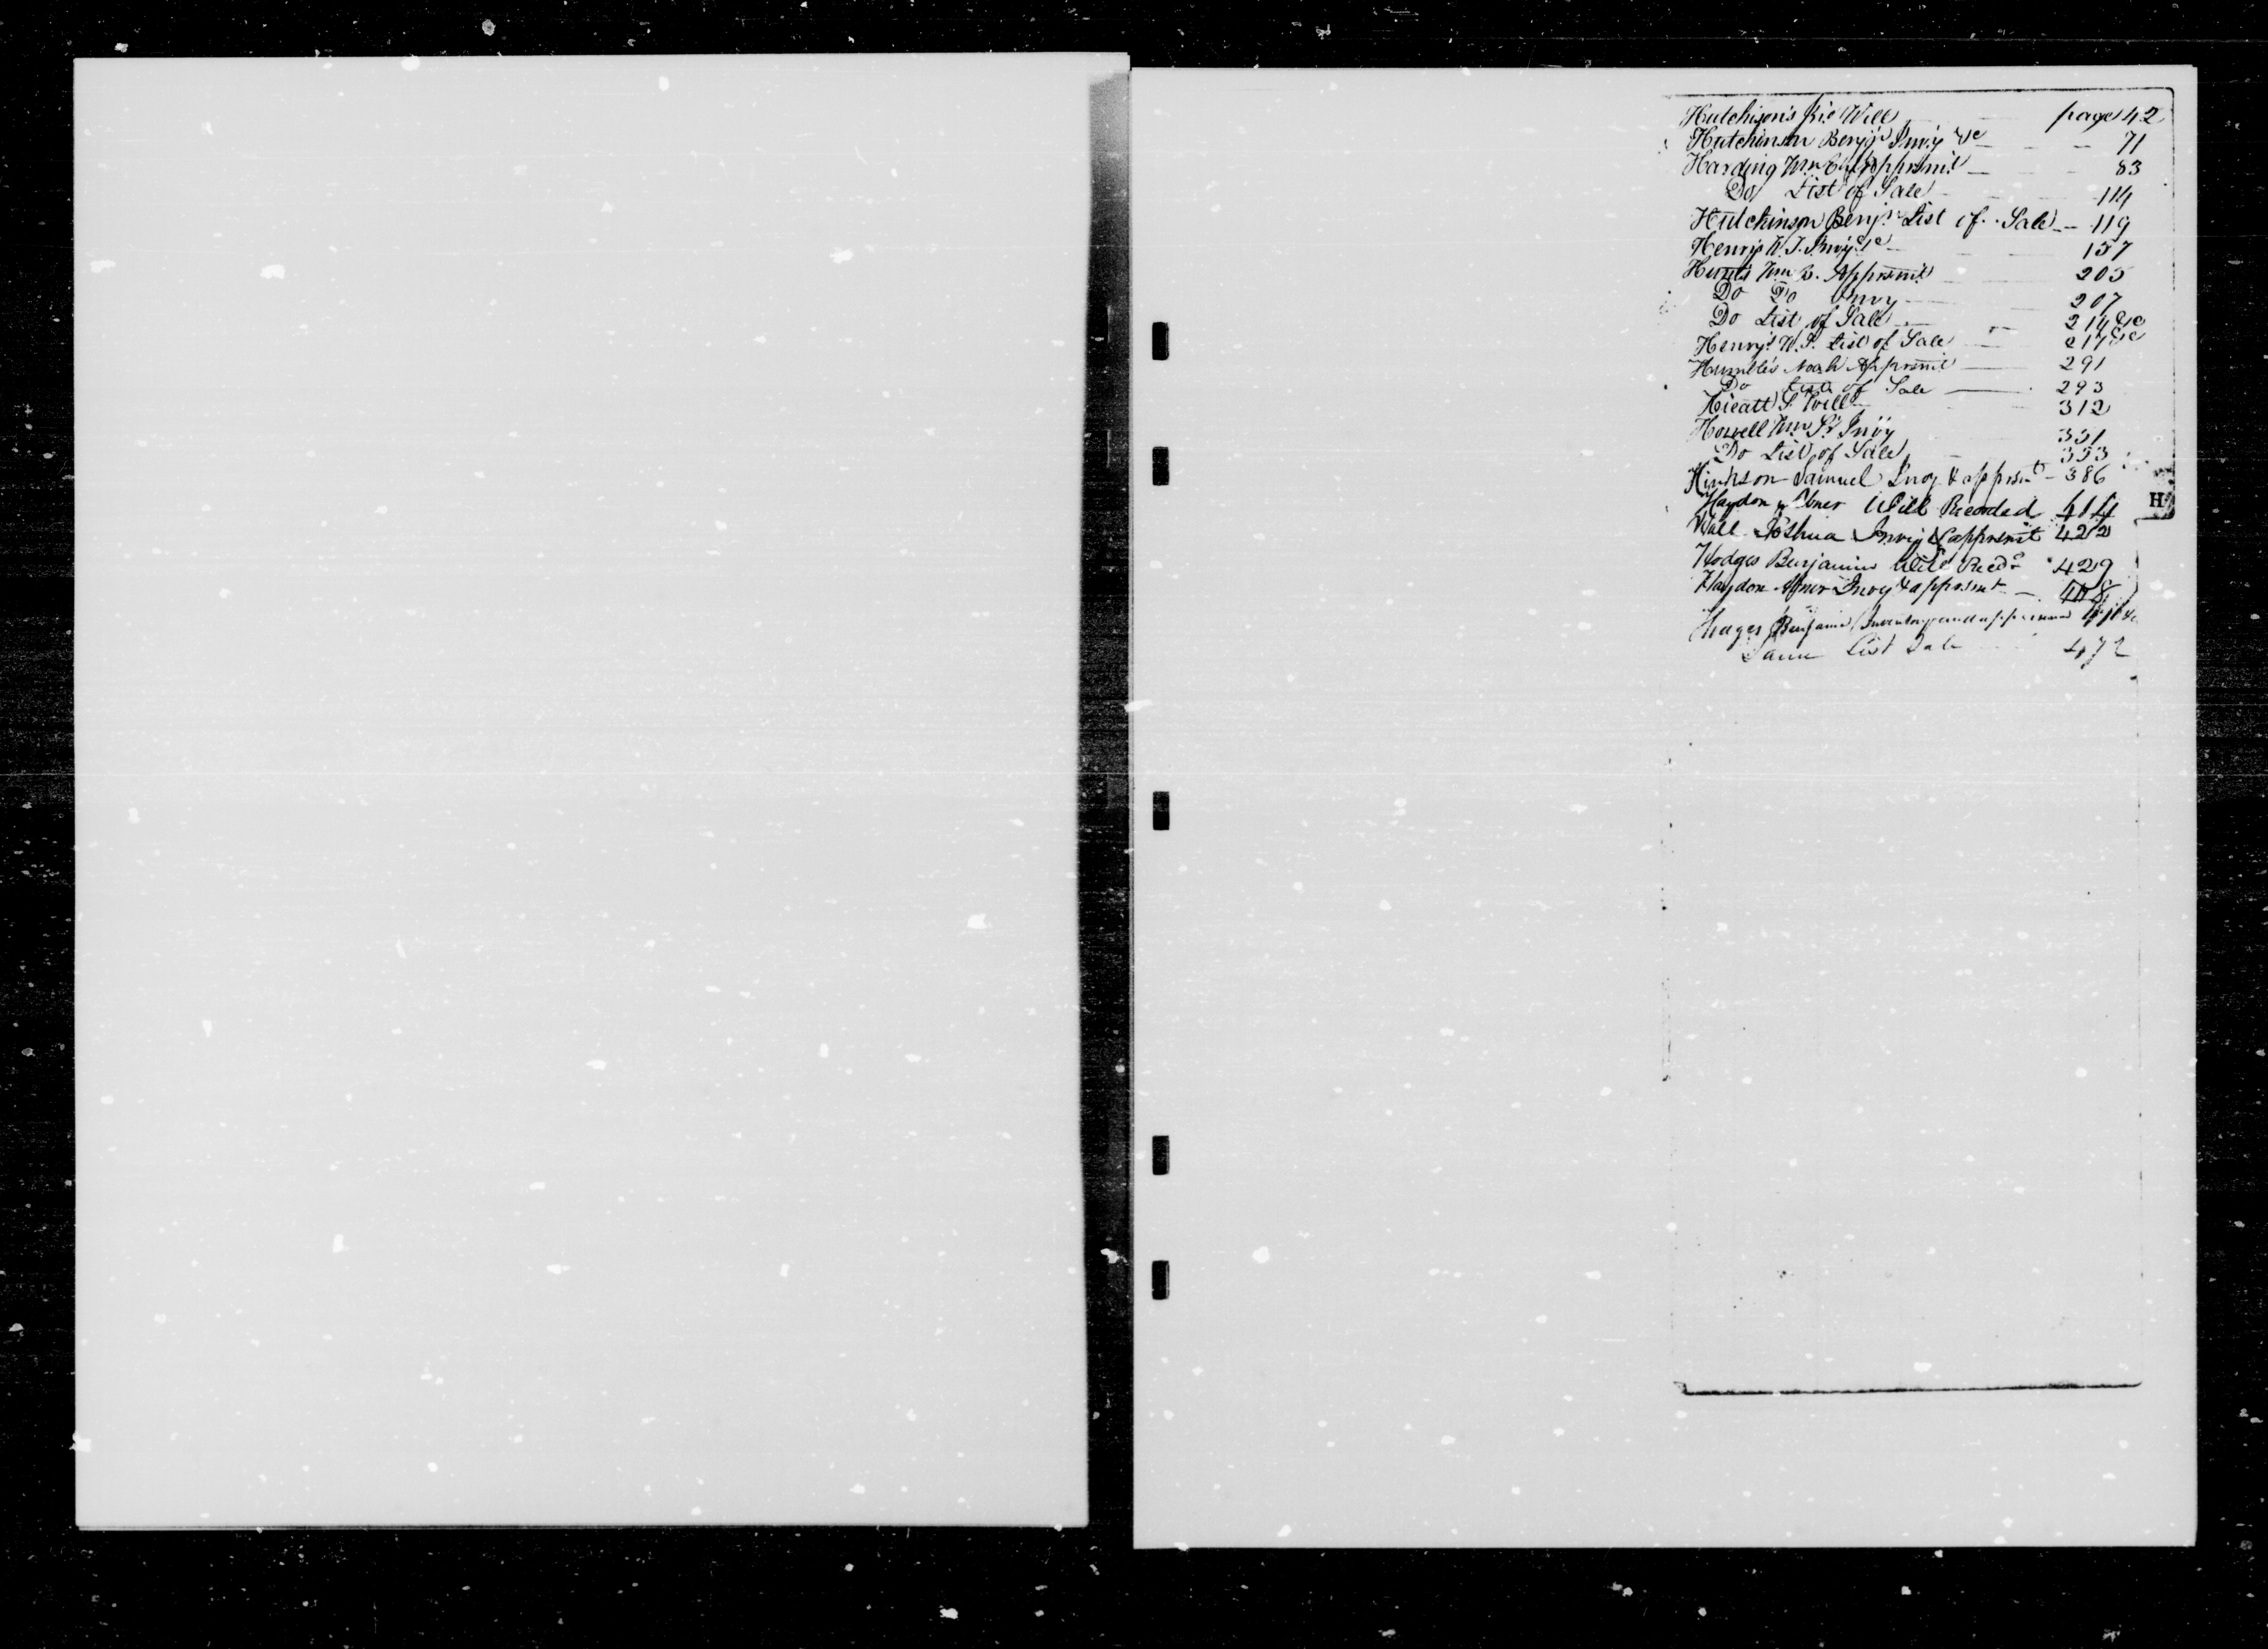 Hutchison's Will page 42
Hutchinson Benj'n Inv'y &c 71
Harding Wm Apprsmt 83
Do List of Sale 114
Hutchinson Benjn List of Sale 119
Henry's Invy &c 157
Wm B. Apprsmt 205
Do Do Invy 207
Do List of Sale 214 &c
Henry's List of Sale 217 &c
Humble's Noah Apprsmt 291
Do List of Sale 293
Hieatt S. Will 312
Howell Wm Sr Invy 351
Do List of Sale 353
Hinkson Samuel Invy & apprsmt 386
Haydon Abner Will Recorded 414
Wall Joshua Invoy & apprsmt 422
Hodges Benjamin Will Recd 429
Haydon Abner Invoy & apprsmt
Benjamin Inventory and
Same List Sale 472
H